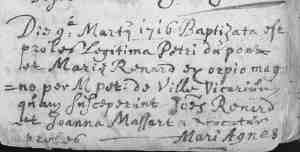 Die 9ª Martÿ 1716 Baptizata est
proles Legitima Petri du pont
et Mariæ Renard ex orpio mag
=no per M petr. de Ville Vicariũ
quam susceperunt Joẽs Renard
et Joanna Massart vocatur
Mari Agnes